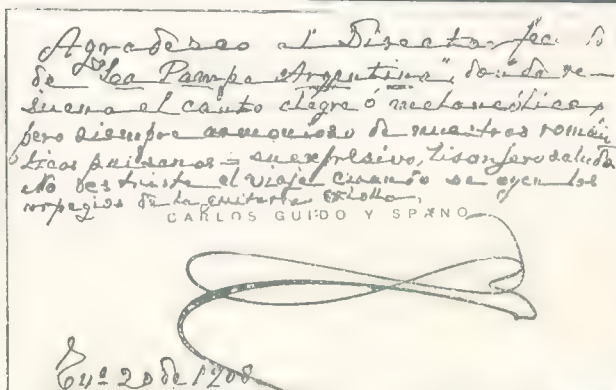 Agradesco al Director
de "La Pampa Argentina", donde re-
suena el canto alegre ó melancólico,
pero siempre armonioso de nuestros román
ticos paisanos = su expresivo, lisonjero saludo
No es triste el viaje cuando se oyen los
arpegios de la guitarra criolla.
CARLOS GUIDO Y SPANO
20 de 1908